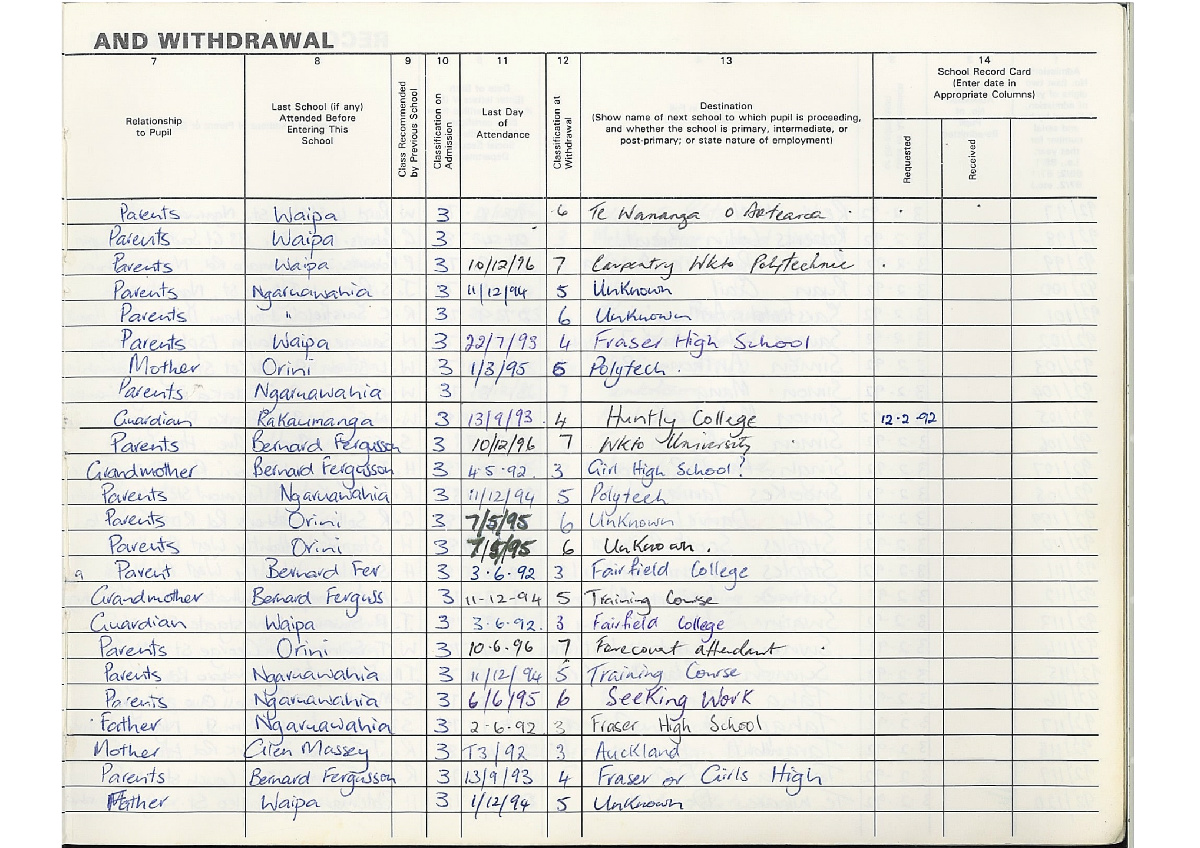 AND WITHDRAWAL
7 8 9 10 11 12 13 14
Relationship to Pupil
Last School (if any) Attended Before Entering This School
Class Recommended by Previous School
Classification on Admission
Last Day of Attendance
Classification at Withdrawal
Destination
(Show name of next school to which pupil is proceeding, and whether the school is primary, intermediate, or post-primary; or state nature of employment)
School Record Card (Enter date in Appropriate Columns)
Requested
Received
Parents Waipa 3 6 Te Wananga o Aotearoa
Parents Waipa 3
Parents Waipa 3 10/12/96 7 Carpentry Wkto Polytechnic
Parents Ngaruawahia 3 11/12/94 5 Unknown
Parents " 3 6 Unknown
Parents Waipa 3 22/7/93 4 Fraser High School
Mother Orini 3 1/3/95 6 Polytech.
Parents Ngaruawahia 3
Guardian Rakaumanga 3 13/9/93. 4 Huntly College 12.2.92
Parents Bernard Fergusson 3 10/12/96 7 Wkto University
Grandmother Bernard Fergusson 3 4.5.92. 3 Girl High School?
Parents Ngaruawahia 3 11/12/94 5 Polytech
Parents Orini 3 7/5/95 6 Unknown
Parents Orini 3 7/5/95 6 Unknown.
a Parent Bernard Fer 3 3.6.92 3 Fairfield College
Grandmother Bernard Ferguss 3 11-12-94 5 Training Course
Guardian Waipa 3 3.6.92. 3 Fairfield College
Parents Orini 3 10.6.96 7 Forecourt attendant
Parents Ngaruawahia 3 11/12/94 5 Training Course
Parents Ngaruawahia 3 6/6/95 6 Seeking Work
Father Ngaruawahia 3 2-6.92. 3 Fraser High School
Mother Glen Massey 3 T3/92 3 Auckland
Parents Bernard Fergusson 3 13/9/93 4 Fraser or Girls High
Mother Waipa 3 1/12/94 5 Unknown